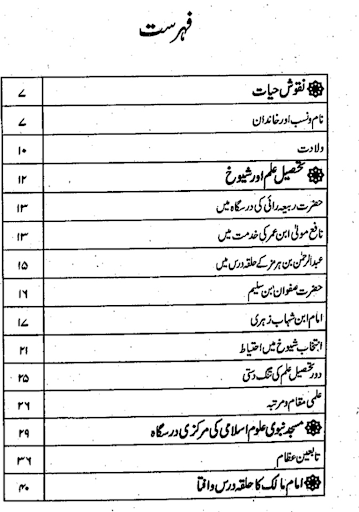 فہرست
نقوش حیات ۷
نام و نسب اور خاندان ۷
ولادت ۱۰
تحصیل علم اور شیوخ ۱۲
حضرت ربیعہ رائی کی درسگاہ میں ۱۳
نافع مولیٰ ابن عمر کی خدمت میں ۱۳
عبدالرحمٰن بن ہرمز کے حلقہ درس میں ۱۵
حضرت صفوان بن سلیم ۱۶
امام ابن شہاب زہری ۱۷
انتخاب شیوخ میں احتیاط ۲۱
دور تحصیل علم کی تنگ دستی ۲۵
علمی مقام و مرتبہ ۲۶
مسجد نبوی علوم اسلامی کی مرکزی درسگاہ ۲۹
تابعین عظام ۳۶
امام مالک کا حلقہ درس و افتا ۴۰